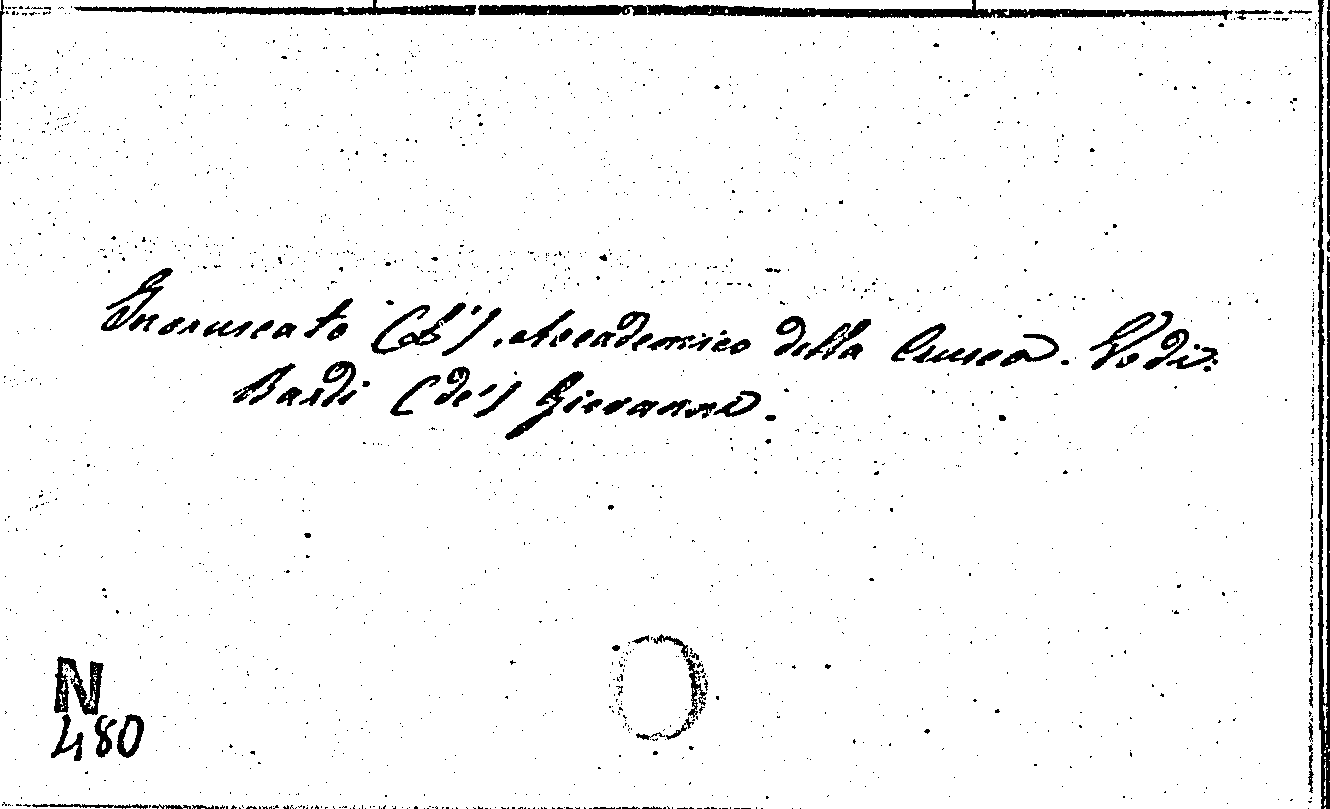 Incruscato (L'). Accademico della Crusca. Vedi:
Bardi (de') Giovanni.
N
480